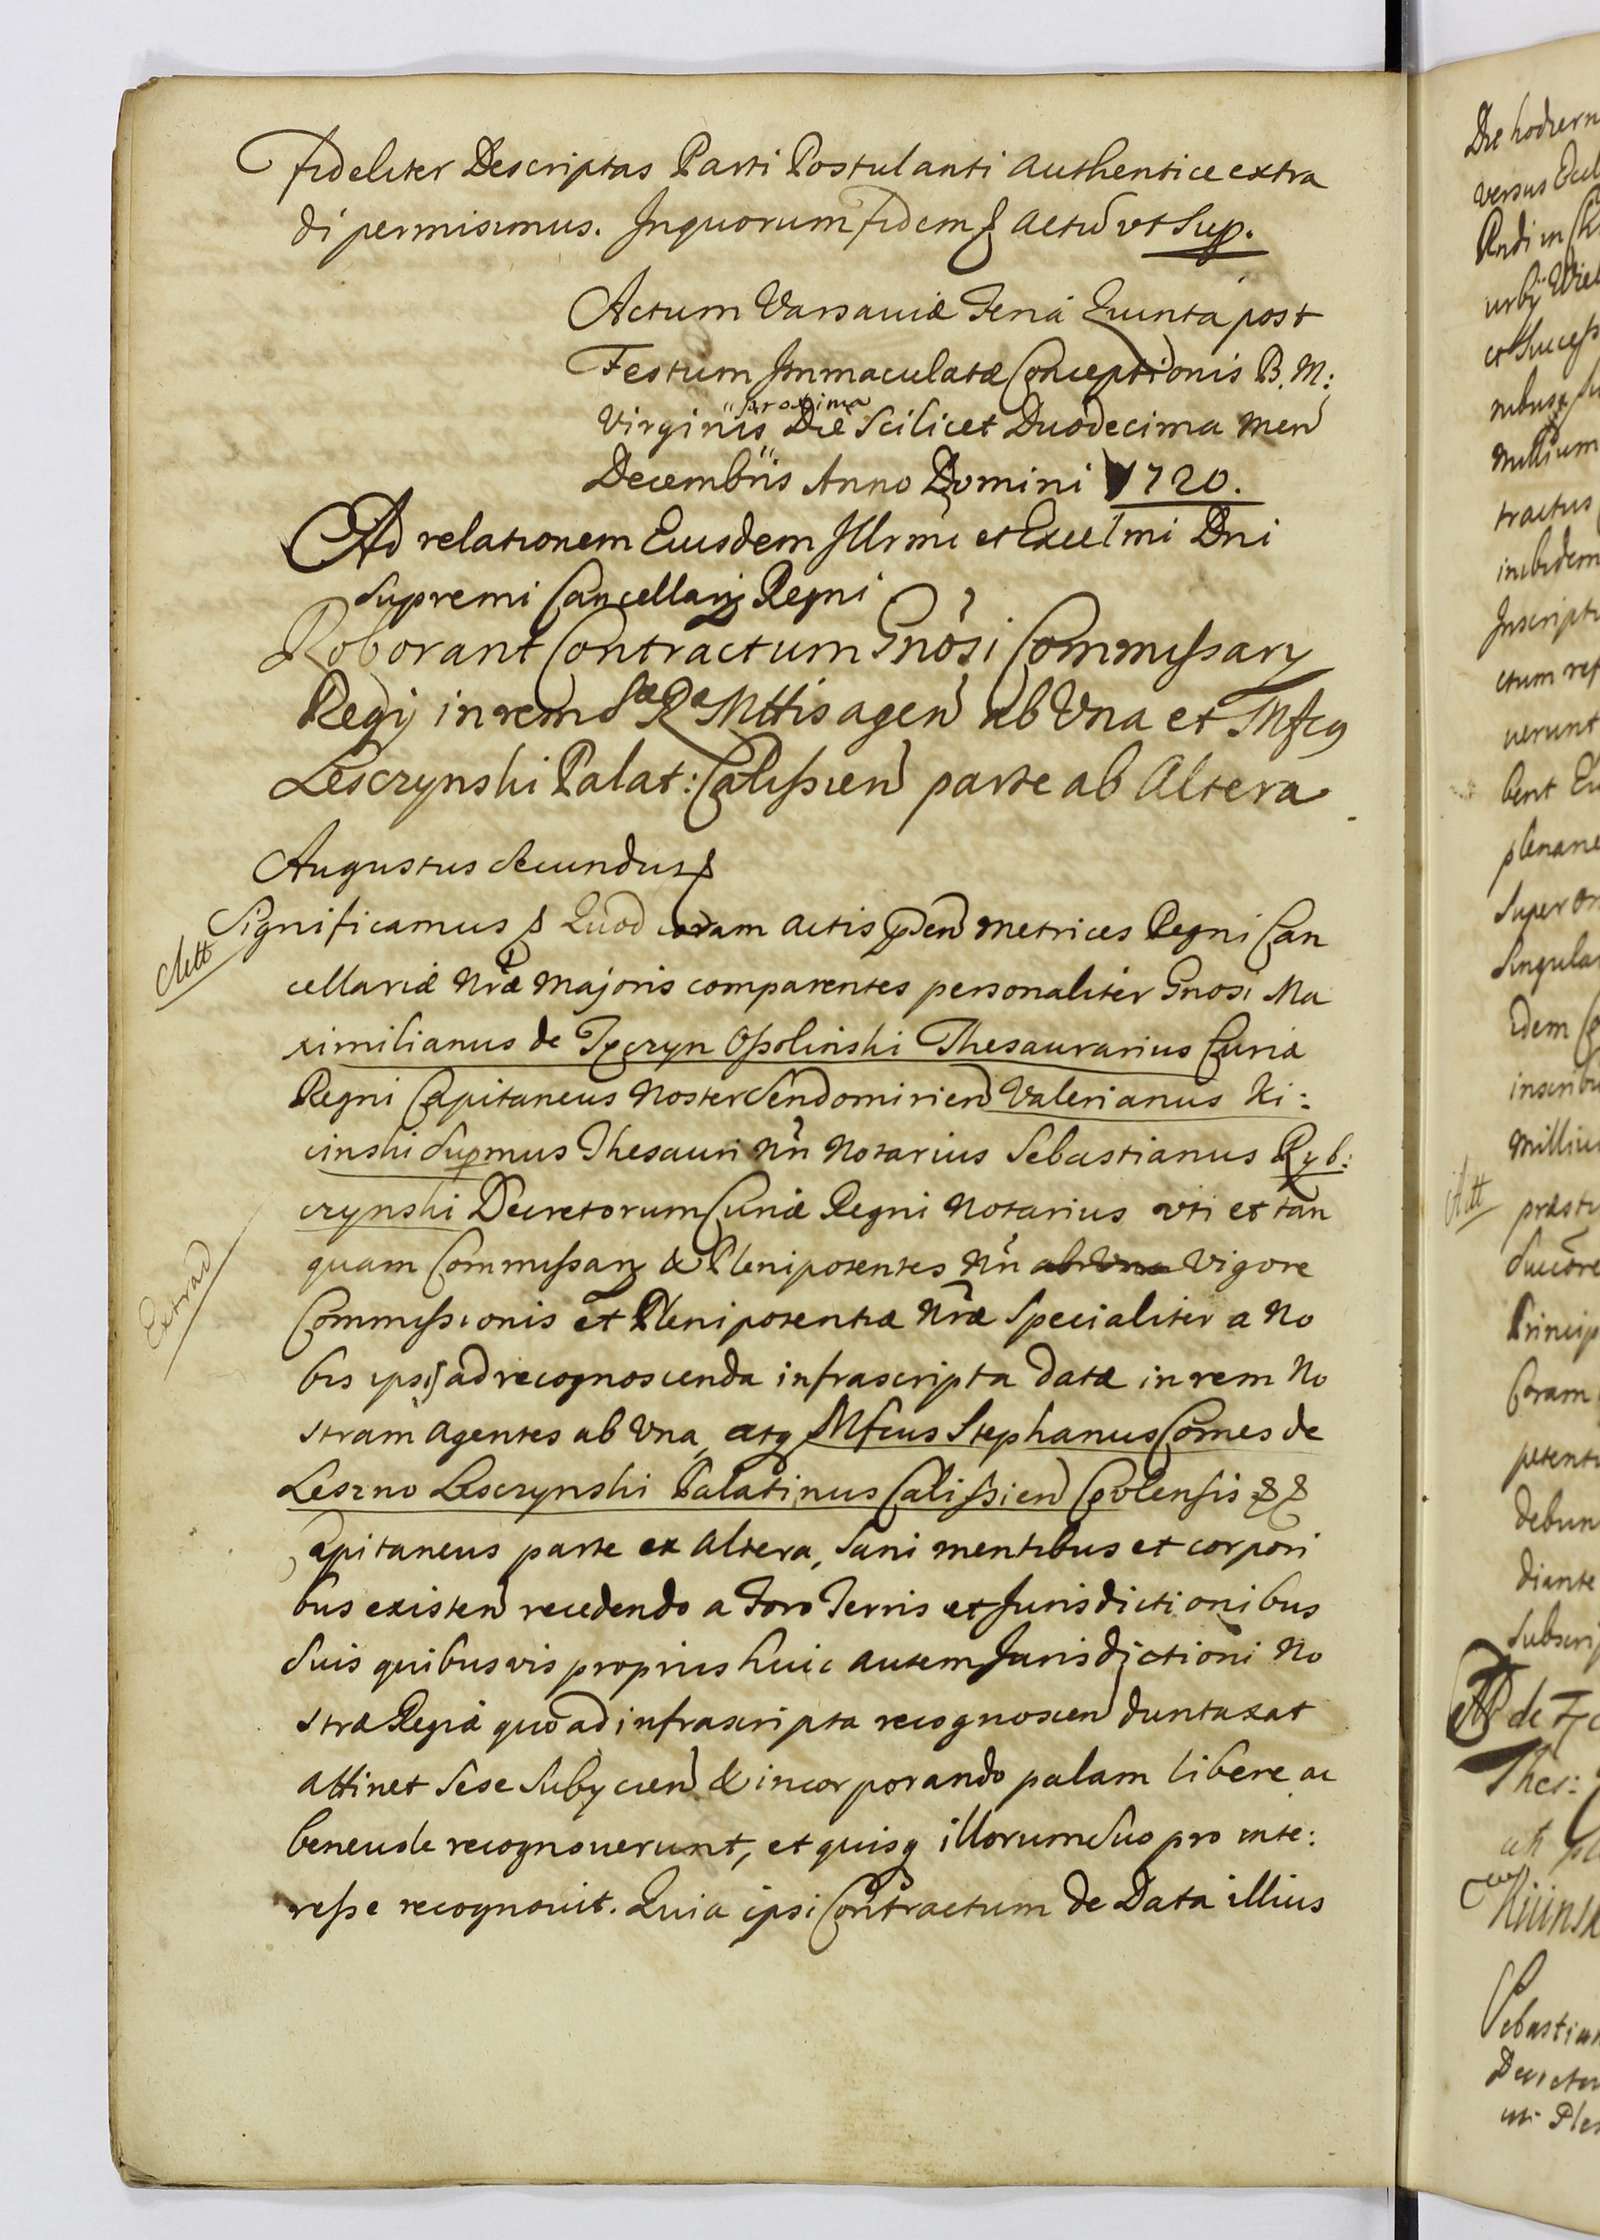 fideliter Descriptas Parti Postulanti authentice extra
di permisimus. Inquorum fidem & Actũ vt Sup.
Actum Varsaviæ Feria Quinta post
Festum Immaculatæ Conceptionis B. M:
proxima
Virginis Die Scilicet Duodecima men
Decembris Anno Domini 1720.
Ad relationem Eiusdem Illrmi et Excelmi Dni
Supremi Cancellarij Regni
Roborant Contractum Gnosi Commissarij
Regij in rem Sæ Ræ Mttis agen ab Vna et Mfcq
Lesczynski Palat: Calissien parte ab Altera
Augustus Secundus &
Significamus & Quod coram actis pden metrices Regni Can
Att
cellariæ Nræ Majoris comparentes personaliter Gnosi Ma
ximilianus de Tęczyn Ossolinski Thesaurarius Curiæ
Regni Capitaneus Noster Sendomirien Valerianus Ki:
cinski Supmus Thesauri Nri Notarius Sebastianus Ryb:
czynski Decretorum Curiæ Regni Notarius vti et tan
quam Commissarij & Plenipotentes Nri ab Vna Vigore
Extrad
Commissionis et Plenipotentiæ Nræ Specialiter a No
bis ipsis ad recognoscenda infrascripta datæ in rem No
stram agentes ab Vna, atq Mfcus Stephanus Comes de
Leszno Lesczynski Palatinus Calissien Covlensis &&
Capitaneus parte ex Altera, Sani mentibus et corpori
bus existen recedendo a Foro Terris et Jurisdictionibus
Suis quibusvis proprijs huic autem Jurisdictioni No
stræ Regiæ quo ad infrascripta recognoscen duntaxat
attinet Sese Subijcien & incorporando palam libere ac
benevole recognoverunt, et quisq illorum Suo pro inte:
resse recognovit. Quia ipsi Contractum de Data illius
Die hodiern
versus
urbij
et Success
tractus
inibidem
Inscripti
verunt
bent
plenane
Super
Singula
idem
inscrib
millium
Att
præsti
Princip
Coram
petenti
debun
diante
Subscrip
de
Thes:
Kicinsk
Sebastian
Decretor
uti Ple